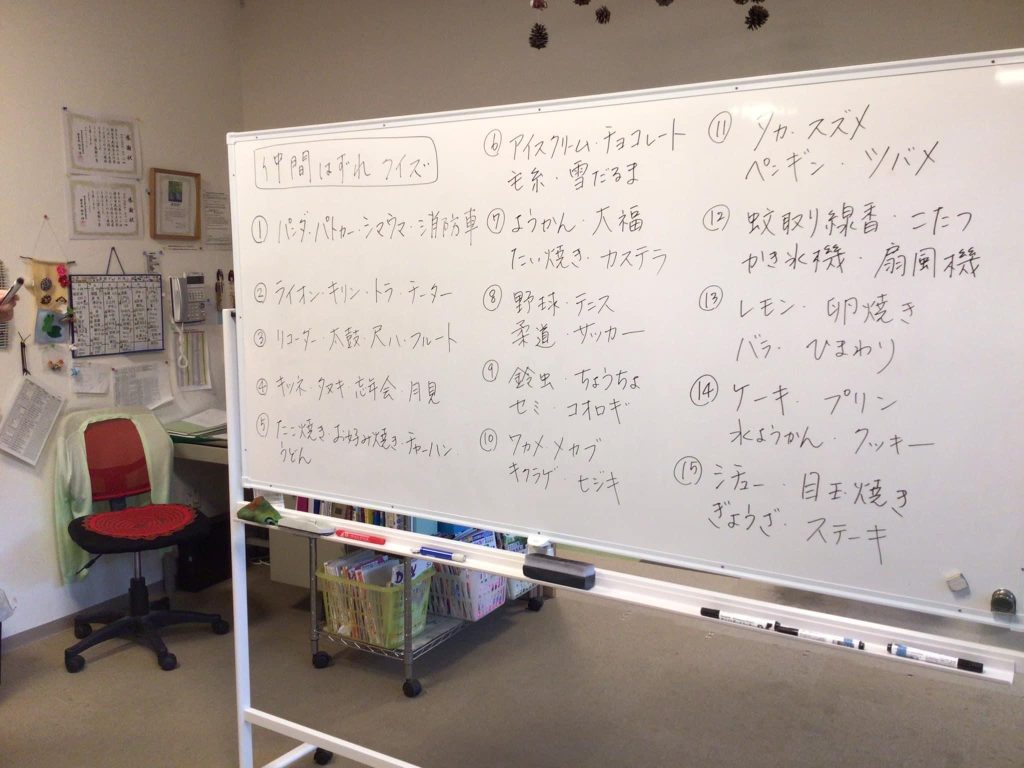 仲間はずれ クイズ
① パンダ・パトカー・シマウマ・消防車
② ライオン・キリン・トラ・チーター
③ リコーダー・太鼓・尺八・フルート
④ キツネ・タヌキ・忘年会・月見
⑤ たこ焼き・お好み焼き・チャーハン・
うどん
⑥ アイスクリーム・チョコレート
毛糸・雪だるま
⑦ ようかん・大福
たい焼き・カステラ
⑧ 野球・テニス
柔道・サッカー
⑨ 鈴虫・ちょうちょ
セミ・コオロギ
⑩ ワカメ・メカブ
キクラゲ・ヒジキ
⑪ シカ・スズメ
ペンギン・ツバメ
⑫ 蚊取り線香・こたつ
かき氷機・扇風機
⑬ レモン・卵焼き
バラ・ひまわり
⑭ ケーキ・プリン
水ようかん・クッキー
⑮ シチュー・目玉焼き
ぎょうざ・ステーキ